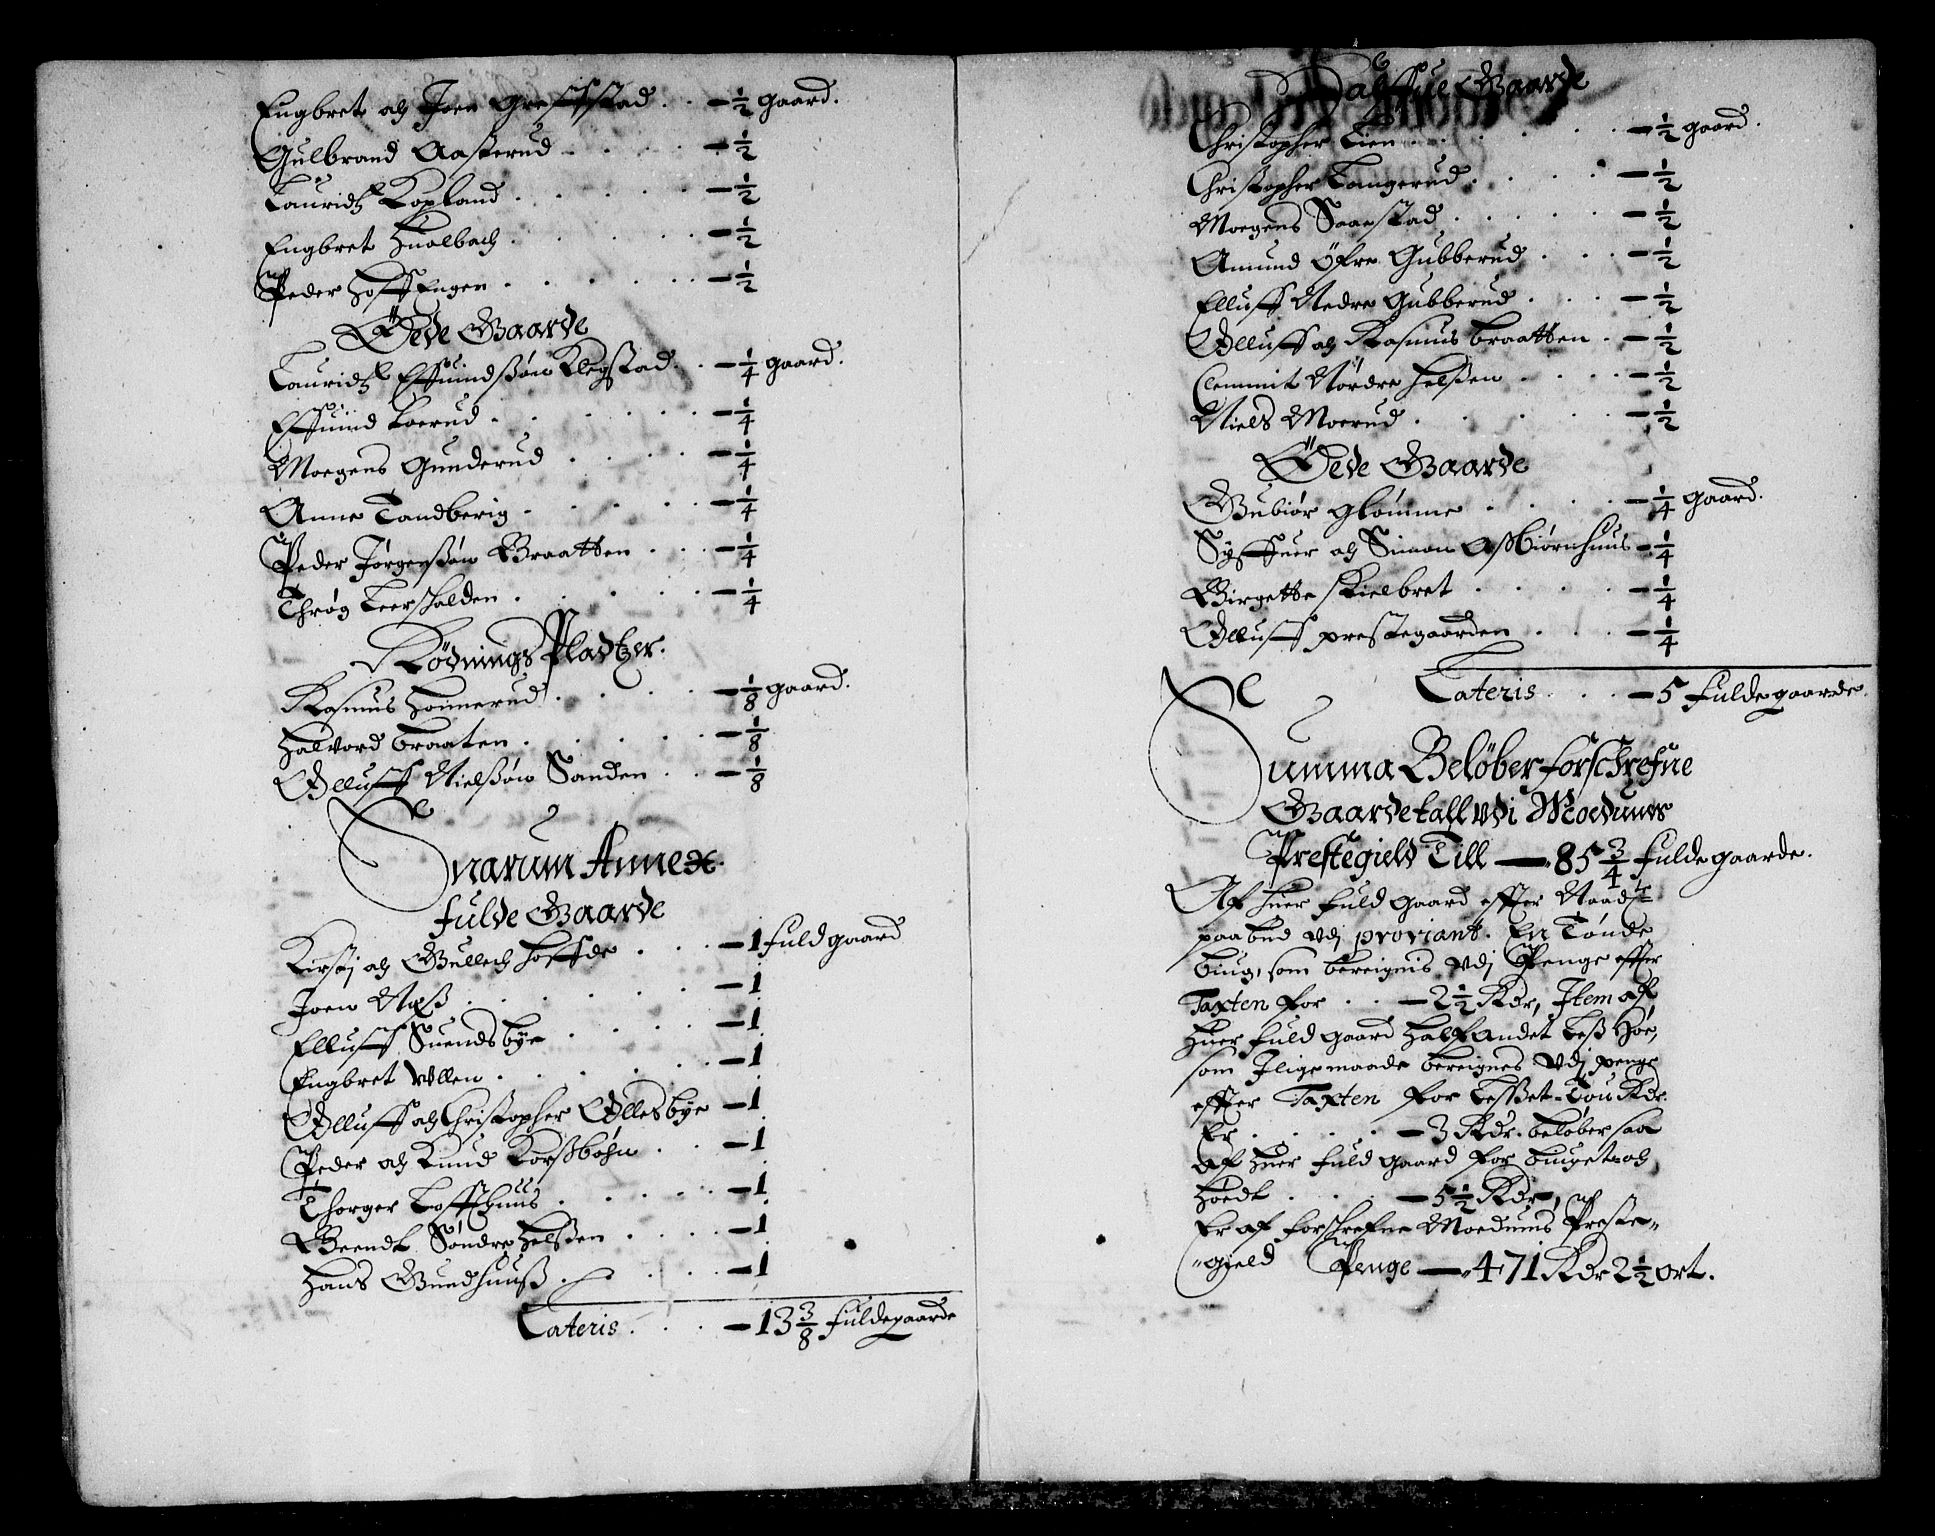 Engbret och Joen Greffstad . . – ½ gaard.
Gulbrand Aasterud . . . . – ½
Lauridtz Kopland . . . . . – ½
Engbret Hualbach . . . . . – ½
Peder Hoff Engen . . . . . – ½
Öede Gaarde
Lauridtz Effuindssøn Klegstad . . – ¼ gaard.
Effuind Loerud . . . . . . – ¼
Moegens Gunderud . . . . – ¼
Anne Tandberig . . . . . – ¼
Peder Jørgenssøn Braatten . . . – ¼
Thrög Leersholden . . . . . – ¼
Rödnings Pladtzer.
Rasmus Honnerud . . . . – ⅛ gaard.
Halvord Braaten . . . . . – ⅛
Olluff Nielssøn Sanden . . – ⅛
Snarum Annex.
fulde Gaarde
Kirstj och Gullech Hoffde . . . – 1 fuld gaard
Joen Næss . . . . . . – 1
Elluff Suendsbye . . . . – 1
Engbret Ullen . . . . . – 1
Olluff och Christopher Ollesbye – 1
Peder och Knud Korssbøhn . . – 1
Thorger Loffthuus . . . . . – 1
Beendt Søndre Helssen . . . . – 1
Hans Gundhuuss . . . . – 1
Lateris . . . – 13 ⅜ fulde gaarde
Halffue Gaarde
Christopher Lien . . . . . . – ½ gaard.
Christopher Langerud . . . . – ½
Moegens Saanstad . . . . . – ½
Amund Öfre Gubberud . . . – ½
Elluff Nedre Gubberud . . . – ½
Olluff och Rasmus Braatten . – ½
Clemmit Nördre Helssen . . . . – ½
Niels Moerud . . . . . – ½
Öede Gaarde
Gubiör Glömme . . . . – ¼ gaard.
Syffuer och Simon Assbiörnhuus – ¼
Birgette Skielbret . . . . – ¼
Olluff prestegaarden . . . – ¼
Lateris . . . – 5 fulde gaarde.
Summa Belöber forschrefne
Gaardetall Udi Moedums
Prestegield Till – 85 ¾ fulde gaarde.
Af huer fuld gaard effter Naadste
paabud udj proviant. En Tönde
biug, som bereignis udj Penge effter
Taxten for . . – 2 ½ Rdr, Item af
huer fuld gaard halfandet Less Höe,
som Jligemaade bereignes udj penge
effter Taxten for Lesset Tou Rdr.
Er . . . . . – 3 Rdr. beløber saa
af huer fuld gaard for biuget och
höedt . . . – 5 ½ Rdr,
Er af forschrefne Moedums Preste-
gield Penge – 471 Rdr 2 ½ ort.